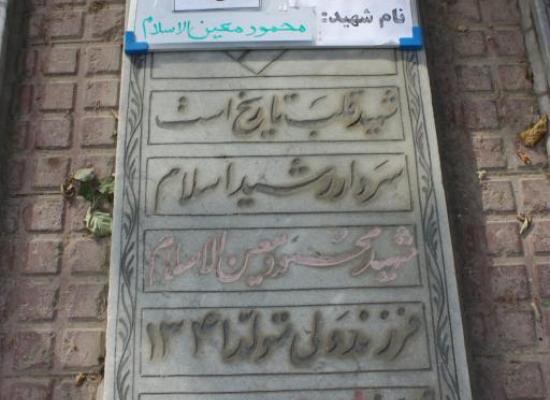 نام شهید: محمود معین الاسلام
شهید قلب تاریخ است
سردار رشید اسلام
شهید محمود معین الاسلام
فرزند ولی تولد ۱۳۴۱